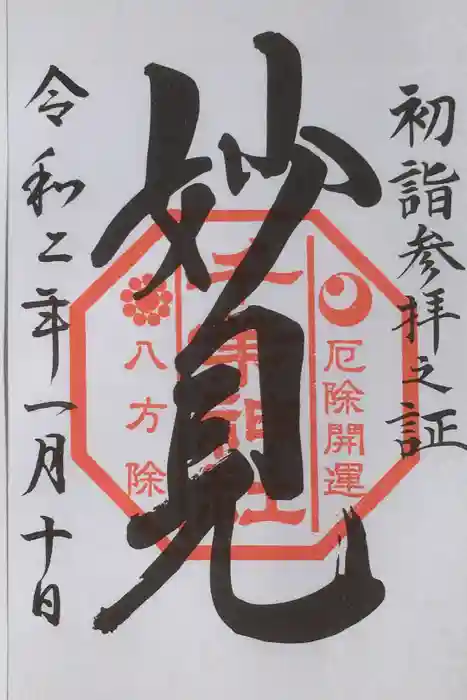 初詣参拝之証
妙見
厄除開運
千葉神社
八方除
令和二年一月十日